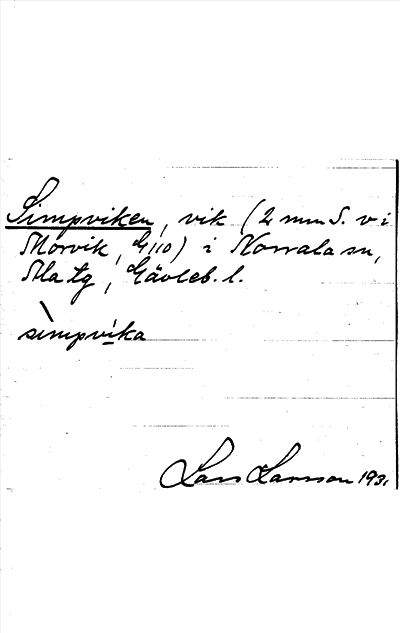 Simpviken, vik (2 mm S. v i
Morvik, G 110) i Norrala sn,
Ala tg, Gävleb. l.
sìmpvíka
Lars Larsson 193